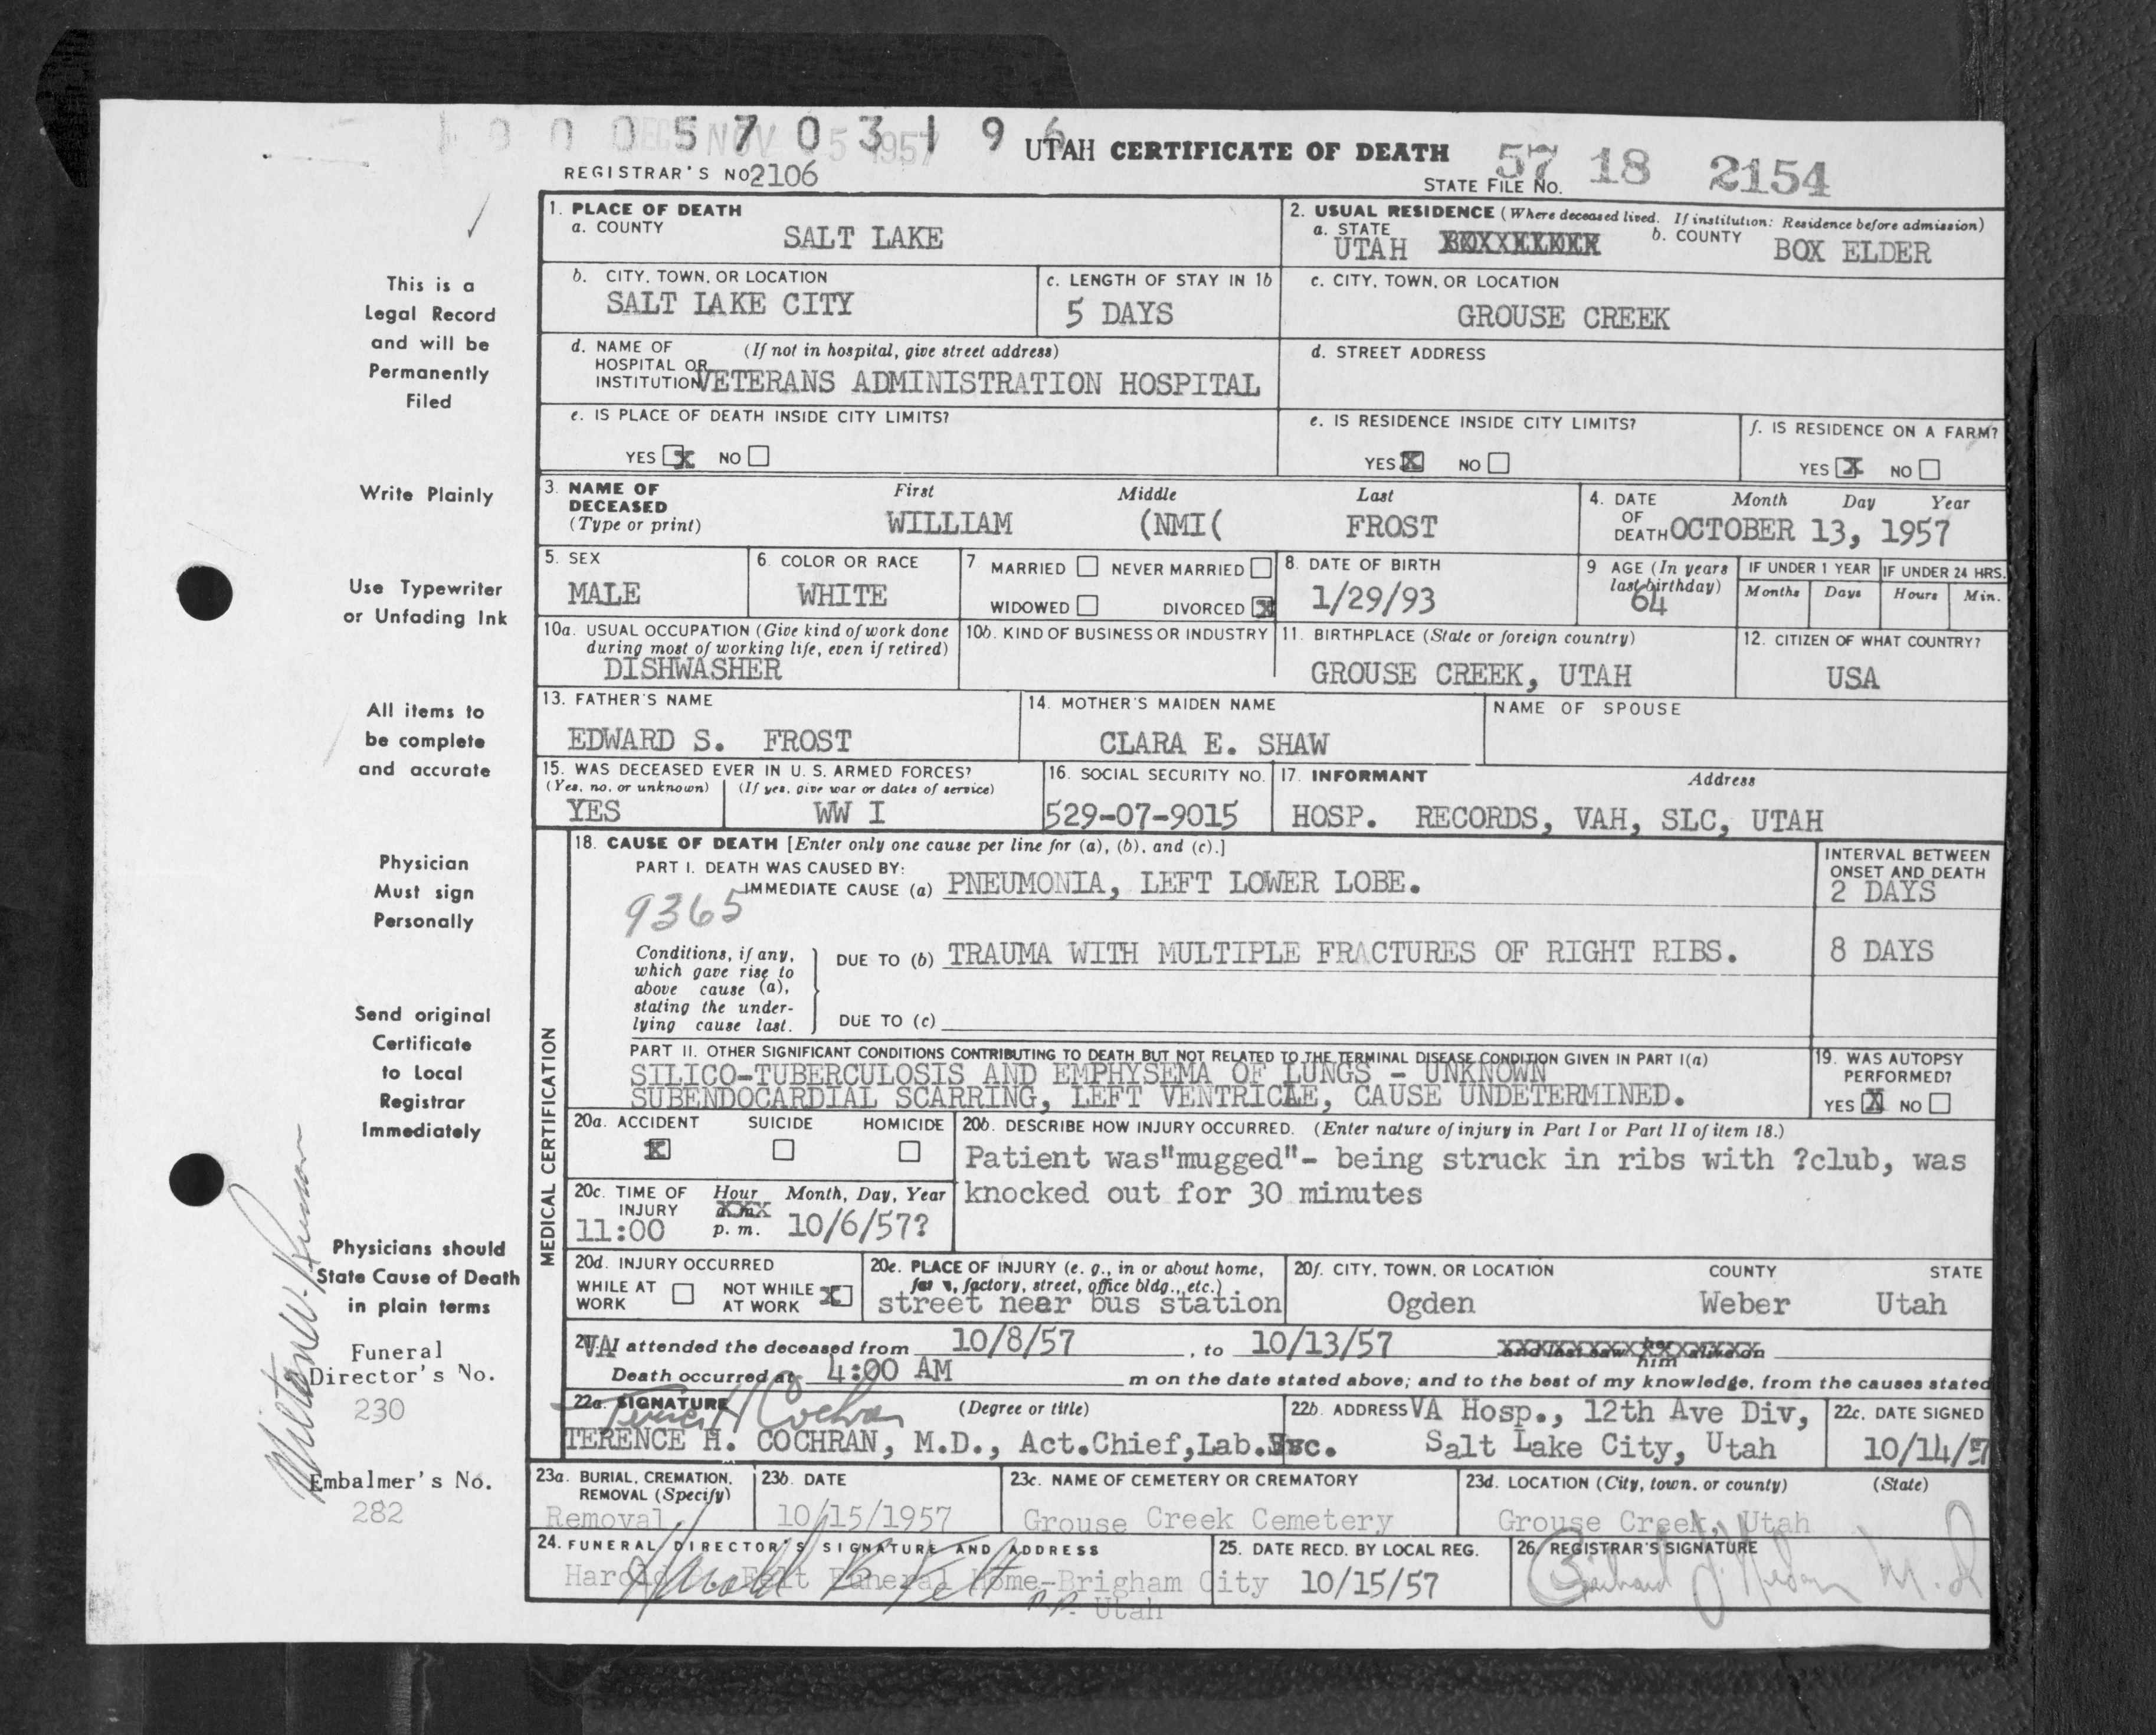 1 9 0 0 5 7 0 3 1 9 6
NOV 1957
UTAH CERTIFICATE OF DEATH
REGISTRAR'S NO 2106
STATE FILE NO. 57 18 2154
This is a
Legal Record
and will be
Permanently
Filed
Write Plainly
Use Typewriter
or Unfading Ink
All items to
be complete
and accurate
Physician
Must sign
Personally
Send original
Certificate
to Local
Registrar
Immediately
Physicians should
State Cause of Death
in plain terms
Funeral
Director's No.
230
Embalmer's No.
282
1. PLACE OF DEATH
a. COUNTY
SALT LAKE
2. USUAL RESIDENCE (Where deceased lived. If institution: Residence before admission)
a. STATE b. COUNTY
UTAH BOX ELDER
b. CITY, TOWN, OR LOCATION
SALT LAKE CITY
c. LENGTH OF STAY IN 1b
5 DAYS
c. CITY, TOWN, OR LOCATION
GROUSE CREEK
d. NAME OF (If not in hospital, give street address)
HOSPITAL OR
INSTITUTION VETERANS ADMINISTRATION HOSPITAL
d. STREET ADDRESS
e. IS PLACE OF DEATH INSIDE CITY LIMITS?
YES X NO
e. IS RESIDENCE INSIDE CITY LIMITS?
YES X NO
f. IS RESIDENCE ON A FARM?
YES X NO
3. NAME OF DECEASED (Type or print)
First Middle Last
WILLIAM (NMI( FROST
4. DATE OF DEATH Month Day Year
OCTOBER 13, 1957
5. SEX
MALE
6. COLOR OR RACE
WHITE
7 MARRIED NEVER MARRIED
WIDOWED DIVORCED X
8. DATE OF BIRTH
1/29/93
9 AGE (In years last birthday)
64
IF UNDER 1 YEAR IF UNDER 24 HRS.
Months Days Hours Min.
10a. USUAL OCCUPATION (Give kind of work done
during most of working life, even if retired)
DISHWASHER
10b. KIND OF BUSINESS OR INDUSTRY
11. BIRTHPLACE (State or foreign country)
GROUSE CREEK, UTAH
12. CITIZEN OF WHAT COUNTRY?
USA
13. FATHER'S NAME
EDWARD S. FROST
14. MOTHER'S MAIDEN NAME
CLARA E. SHAW
NAME OF SPOUSE
15. WAS DECEASED EVER IN U. S. ARMED FORCES?
(Yes, no, or unknown) (If yes, give war or dates of service)
YES WW I
16. SOCIAL SECURITY NO.
529-07-9015
17. INFORMANT Address
HOSP. RECORDS, VAH, SLC, UTAH
MEDICAL CERTIFICATION
18. CAUSE OF DEATH [Enter only one cause per line for (a), (b), and (c).]
PART I. DEATH WAS CAUSED BY:
IMMEDIATE CAUSE (a) PNEUMONIA, LEFT LOWER LOBE.
9365
INTERVAL BETWEEN
ONSET AND DEATH
2 DAYS
Conditions, if any,
which gave rise to
above cause (a),
stating the under-
lying cause last.
DUE TO (b) TRAUMA WITH MULTIPLE FRACTURES OF RIGHT RIBS.
8 DAYS
DUE TO (c)
PART II. OTHER SIGNIFICANT CONDITIONS CONTRIBUTING TO DEATH BUT NOT RELATED TO THE TERMINAL DISEASE CONDITION GIVEN IN PART I(a)
SILICO-TUBERCULOSIS AND EMPHYSEMA OF LUNGS - UNKNOWN
SUBENDOCARDIAL SCARRING, LEFT VENTRICLE, CAUSE UNDETERMINED.
19. WAS AUTOPSY
PERFORMED?
YES X NO
20a. ACCIDENT SUICIDE HOMICIDE
X
20b. DESCRIBE HOW INJURY OCCURRED. (Enter nature of injury in Part I or Part II of item 18.)
Patient was"mugged"- being struck in ribs with ?club, was
knocked out for 30 minutes
20c. TIME OF INJURY Hour Month, Day, Year
11:00 p. m. 10/6/57?
20d. INJURY OCCURRED
WHILE AT WORK NOT WHILE AT WORK X
20e. PLACE OF INJURY (e. g., in or about home,
farm, factory, street, office bldg., etc.)
street near bus station
20f. CITY, TOWN, OR LOCATION COUNTY STATE
Ogden Weber Utah
21. VA I attended the deceased from 10/8/57, to 10/13/57 and last saw her him alive on
Death occurred at 4:00 AM m on the date stated above; and to the best of my knowledge, from the causes stated
22a. SIGNATURE (Degree or title)
Terence H Cochran
TERENCE H. COCHRAN, M.D., Act.Chief,Lab.Svc.
22b. ADDRESS VA Hosp., 12th Ave Div,
Salt Lake City, Utah
22c. DATE SIGNED
10/14/57
23a. BURIAL, CREMATION,
REMOVAL (Specify)
Removal
23b. DATE
10/15/1957
23c. NAME OF CEMETERY OR CREMATORY
Grouse Creek Cemetery
23d. LOCATION (City, town, or county) (State)
Grouse Creek, Utah
24. FUNERAL DIRECTOR'S SIGNATURE AND ADDRESS
Harold B. Felt Funeral Home-Brigham City
Utah
Harold B Felt
25. DATE RECD. BY LOCAL REG.
10/15/57
26 REGISTRAR'S SIGNATURE
M. D